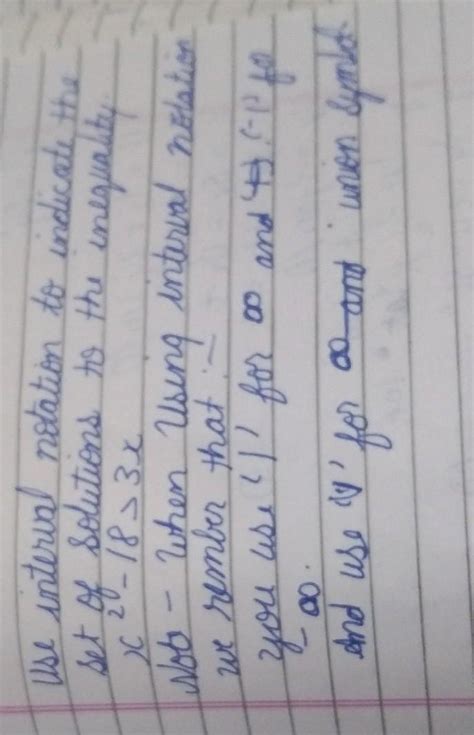 Use interval notation to indicate the
set of solutions to the inequality.
x² - 18 > 3x
Note - When Using interval notation
we rember that :-
you use 'I' for ∞ and '-I' for
-∞.
And use 'U' for union symbol.